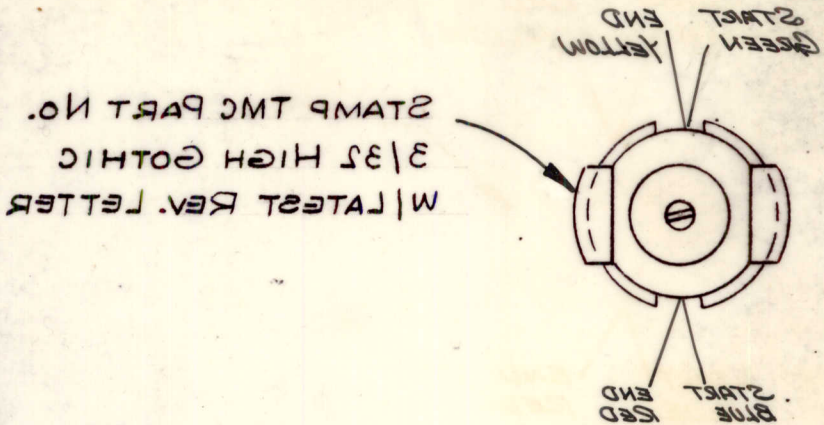 START
GREEN
END
YELLOW
STAMP TMC PART NO.
3/32 HIGH GOTHIC
W/LATEST REV. LETTER
START
BLUE
END
RED